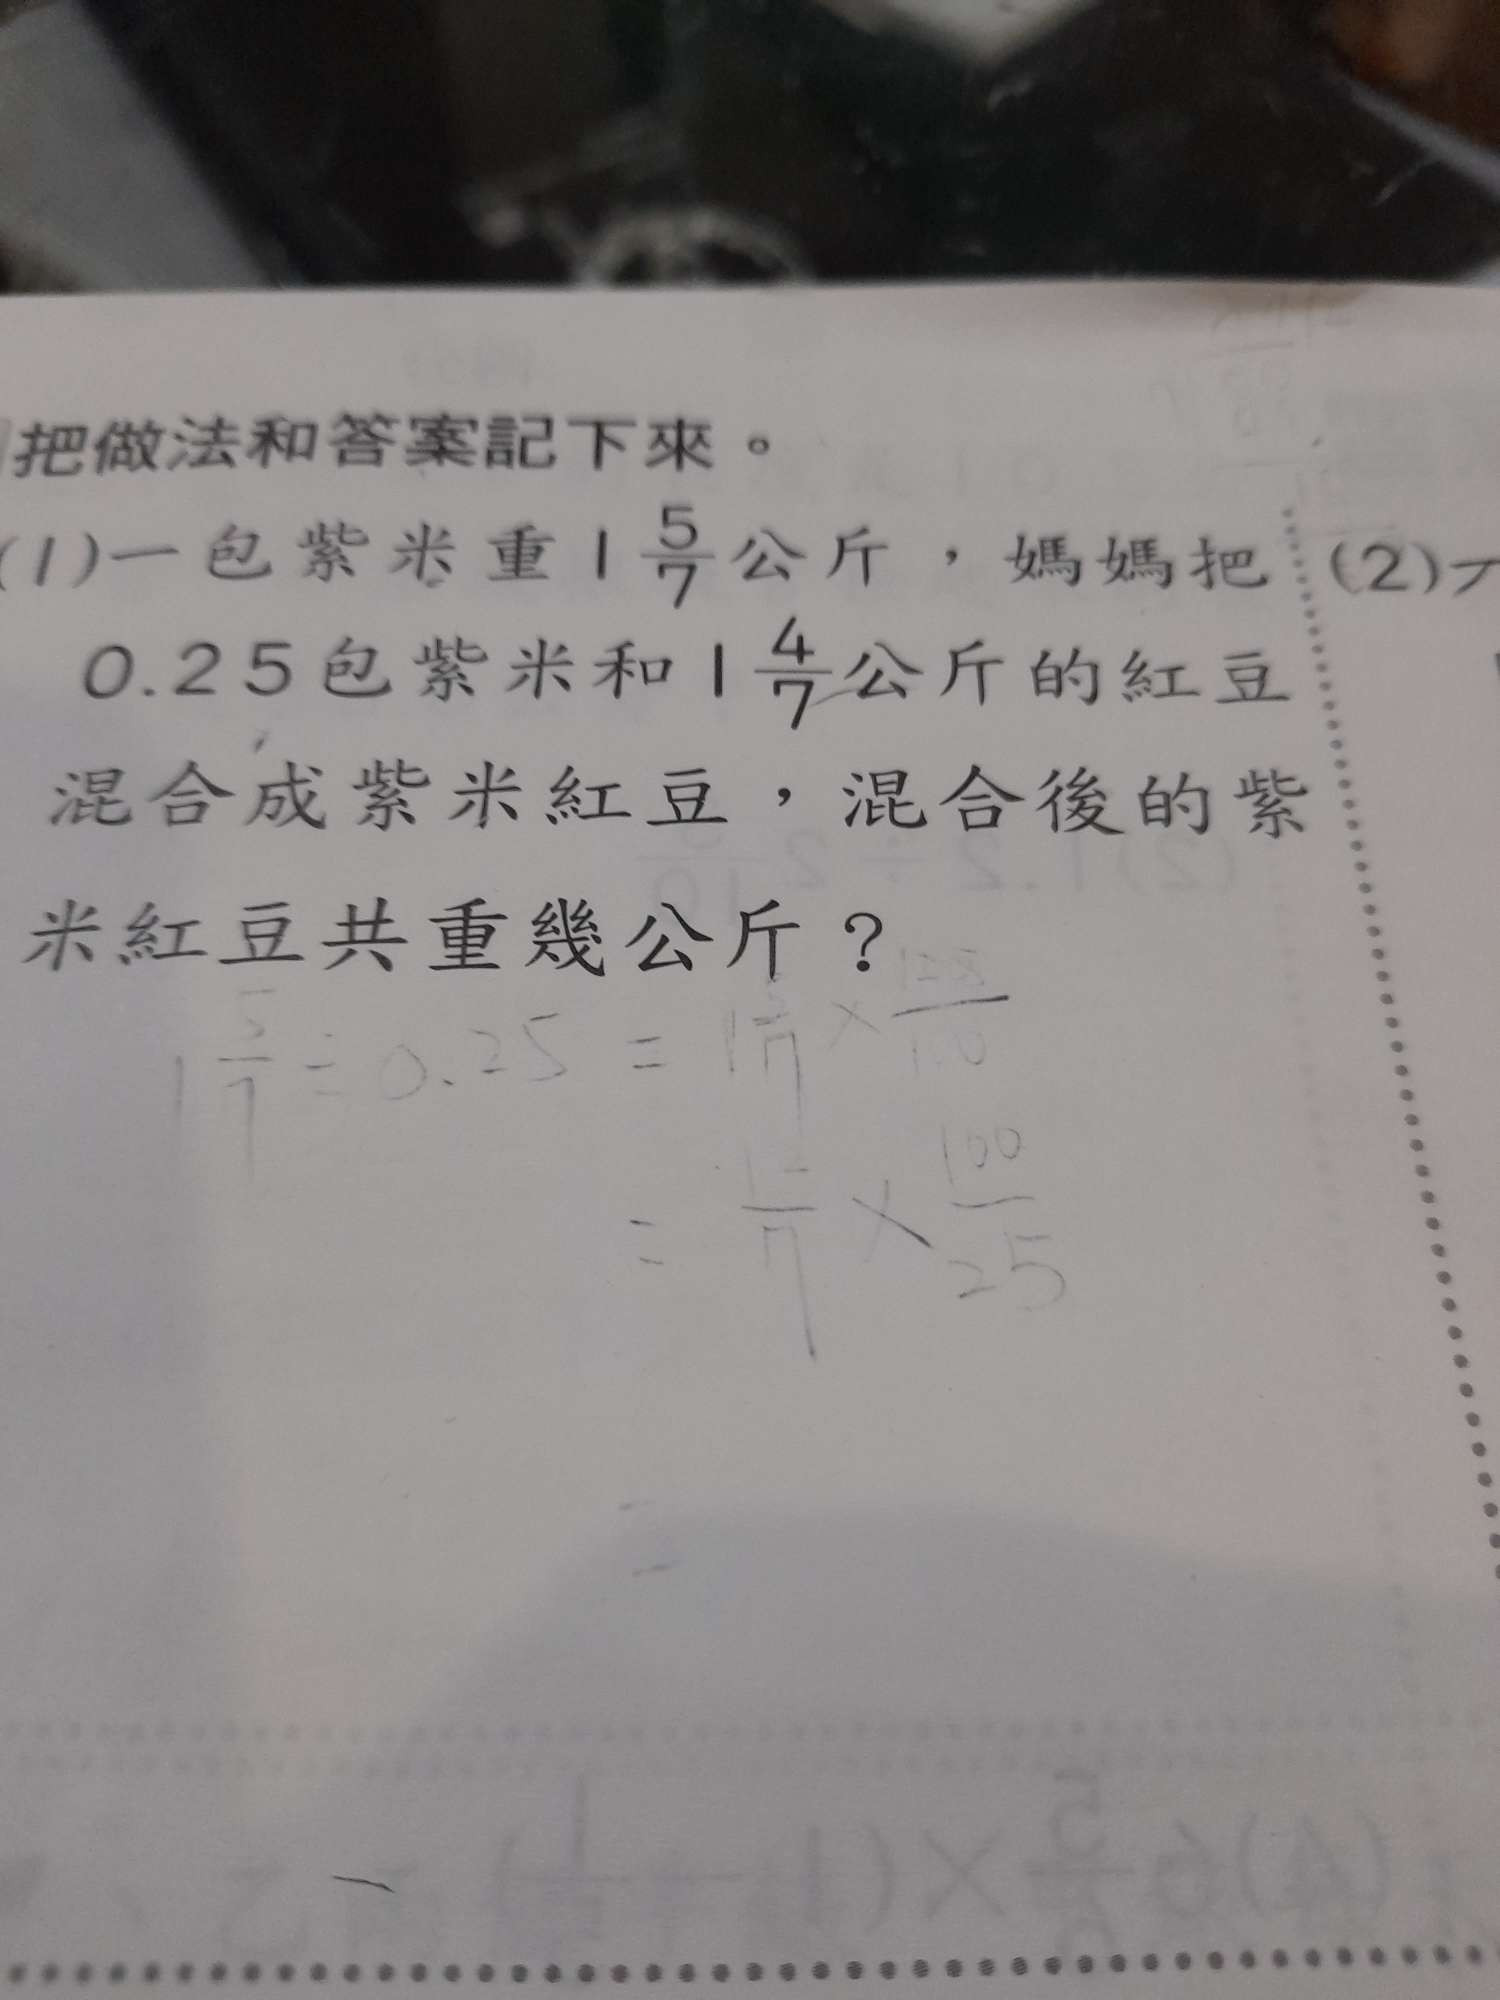 把做法和答案記下來。
(1)一包紫米重1 5/7公斤，媽媽把
0.25包紫米和1 4/7公斤的紅豆
混合成紫米紅豆，混合後的紫
米紅豆共重幾公斤？
(2)
1 5/7 ÷ 0.25 = 1 5/7 ×
= 12/7 × 100/25